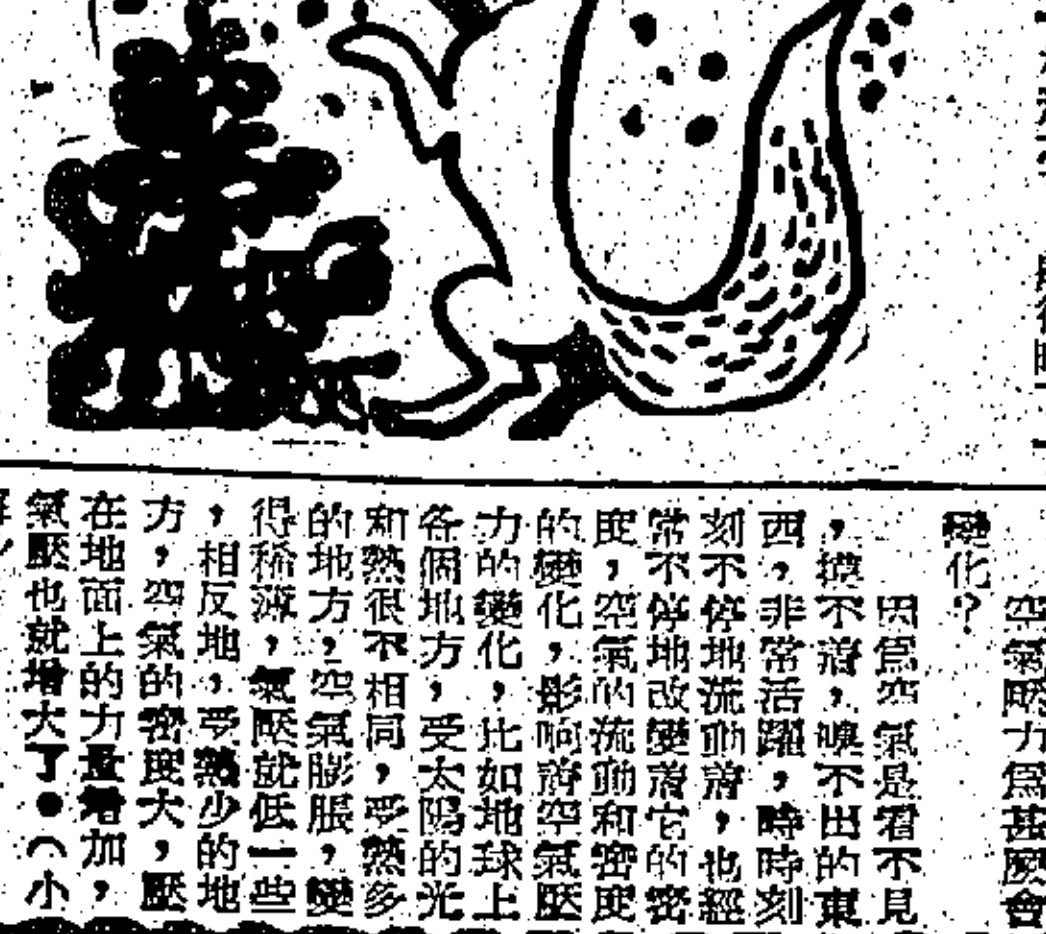 空氣壓力爲甚麽會
變化？
因爲空氣是看不見
，摸不着，嗅不出的東
西，非常活躍，時時刻
刻不停地流動着，也經
常不停地改變着它的密
度，空氣的流動和密度
的變化，影响着空氣壓
力的變化，比如地球上
各個地方，受太陽的光
和熱很不相同，受熱多
的地方，空氣膨脹，變
得稀薄，氣壓就低一些
，相反地，受熱少的地
方，空氣的密度大，壓
在地面上的力量增加，
氣壓也就增大了●（小